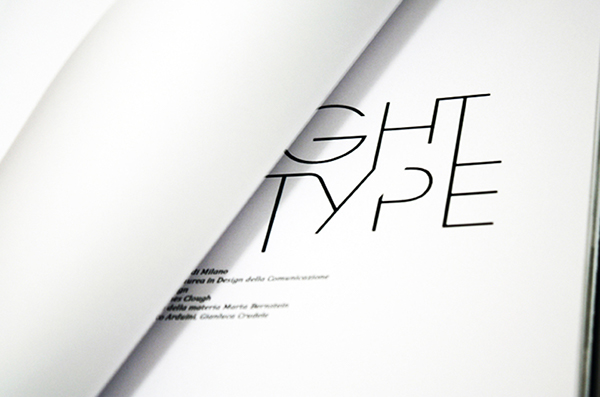 GHT
TYPE
di Milano
urea in Design della Comunicazione
gn
es Clough
della materia Marta Bernstein
o Arduini, Gianluca Crudele